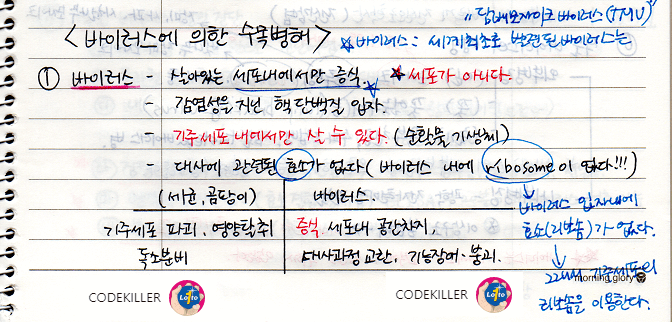 "담배모자이크 바이러스(TMV)"
<바이러스에 의한 수목병해> ☆바이러스: 세계최초로 발견된 바이러스는
① 바이러스 - 살아있는 세포내에서만 증식. ☆세포가 아니다.
- 감염성을 지닌 핵단백질 입자.
- 기주세포 내에서만 살 수 있다. (순활물기생체)
- 대사에 관련된 효소가 없다 (바이러스 내에 ribosome이 없다!!!)
(세균, 곰팡이) 바이러스.
→ 바이러스 입자내에 효소(리보솜)가 없다.
기주세포 파괴. 영양탈취 증식. 세포내 공간차지,
독소분비 대사과정 교란, 기능장애·붕괴.
→ 그래서 기주세포의
리보솜을 이용한다.
morning glory
CODEKILLER Lotto CODEKILLER Lotto